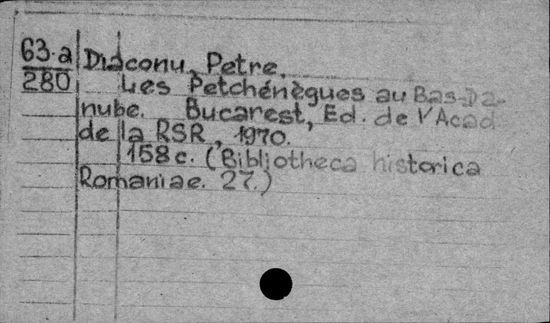 63-a
280
Diaconu, Petre.
Les Petchénègues au Bas-Da-
nube. Bucarest, Ed. de l'Acad
de la RSR, 1970.
158 c. (Bibliotheca historica
Romaniae. 27.)